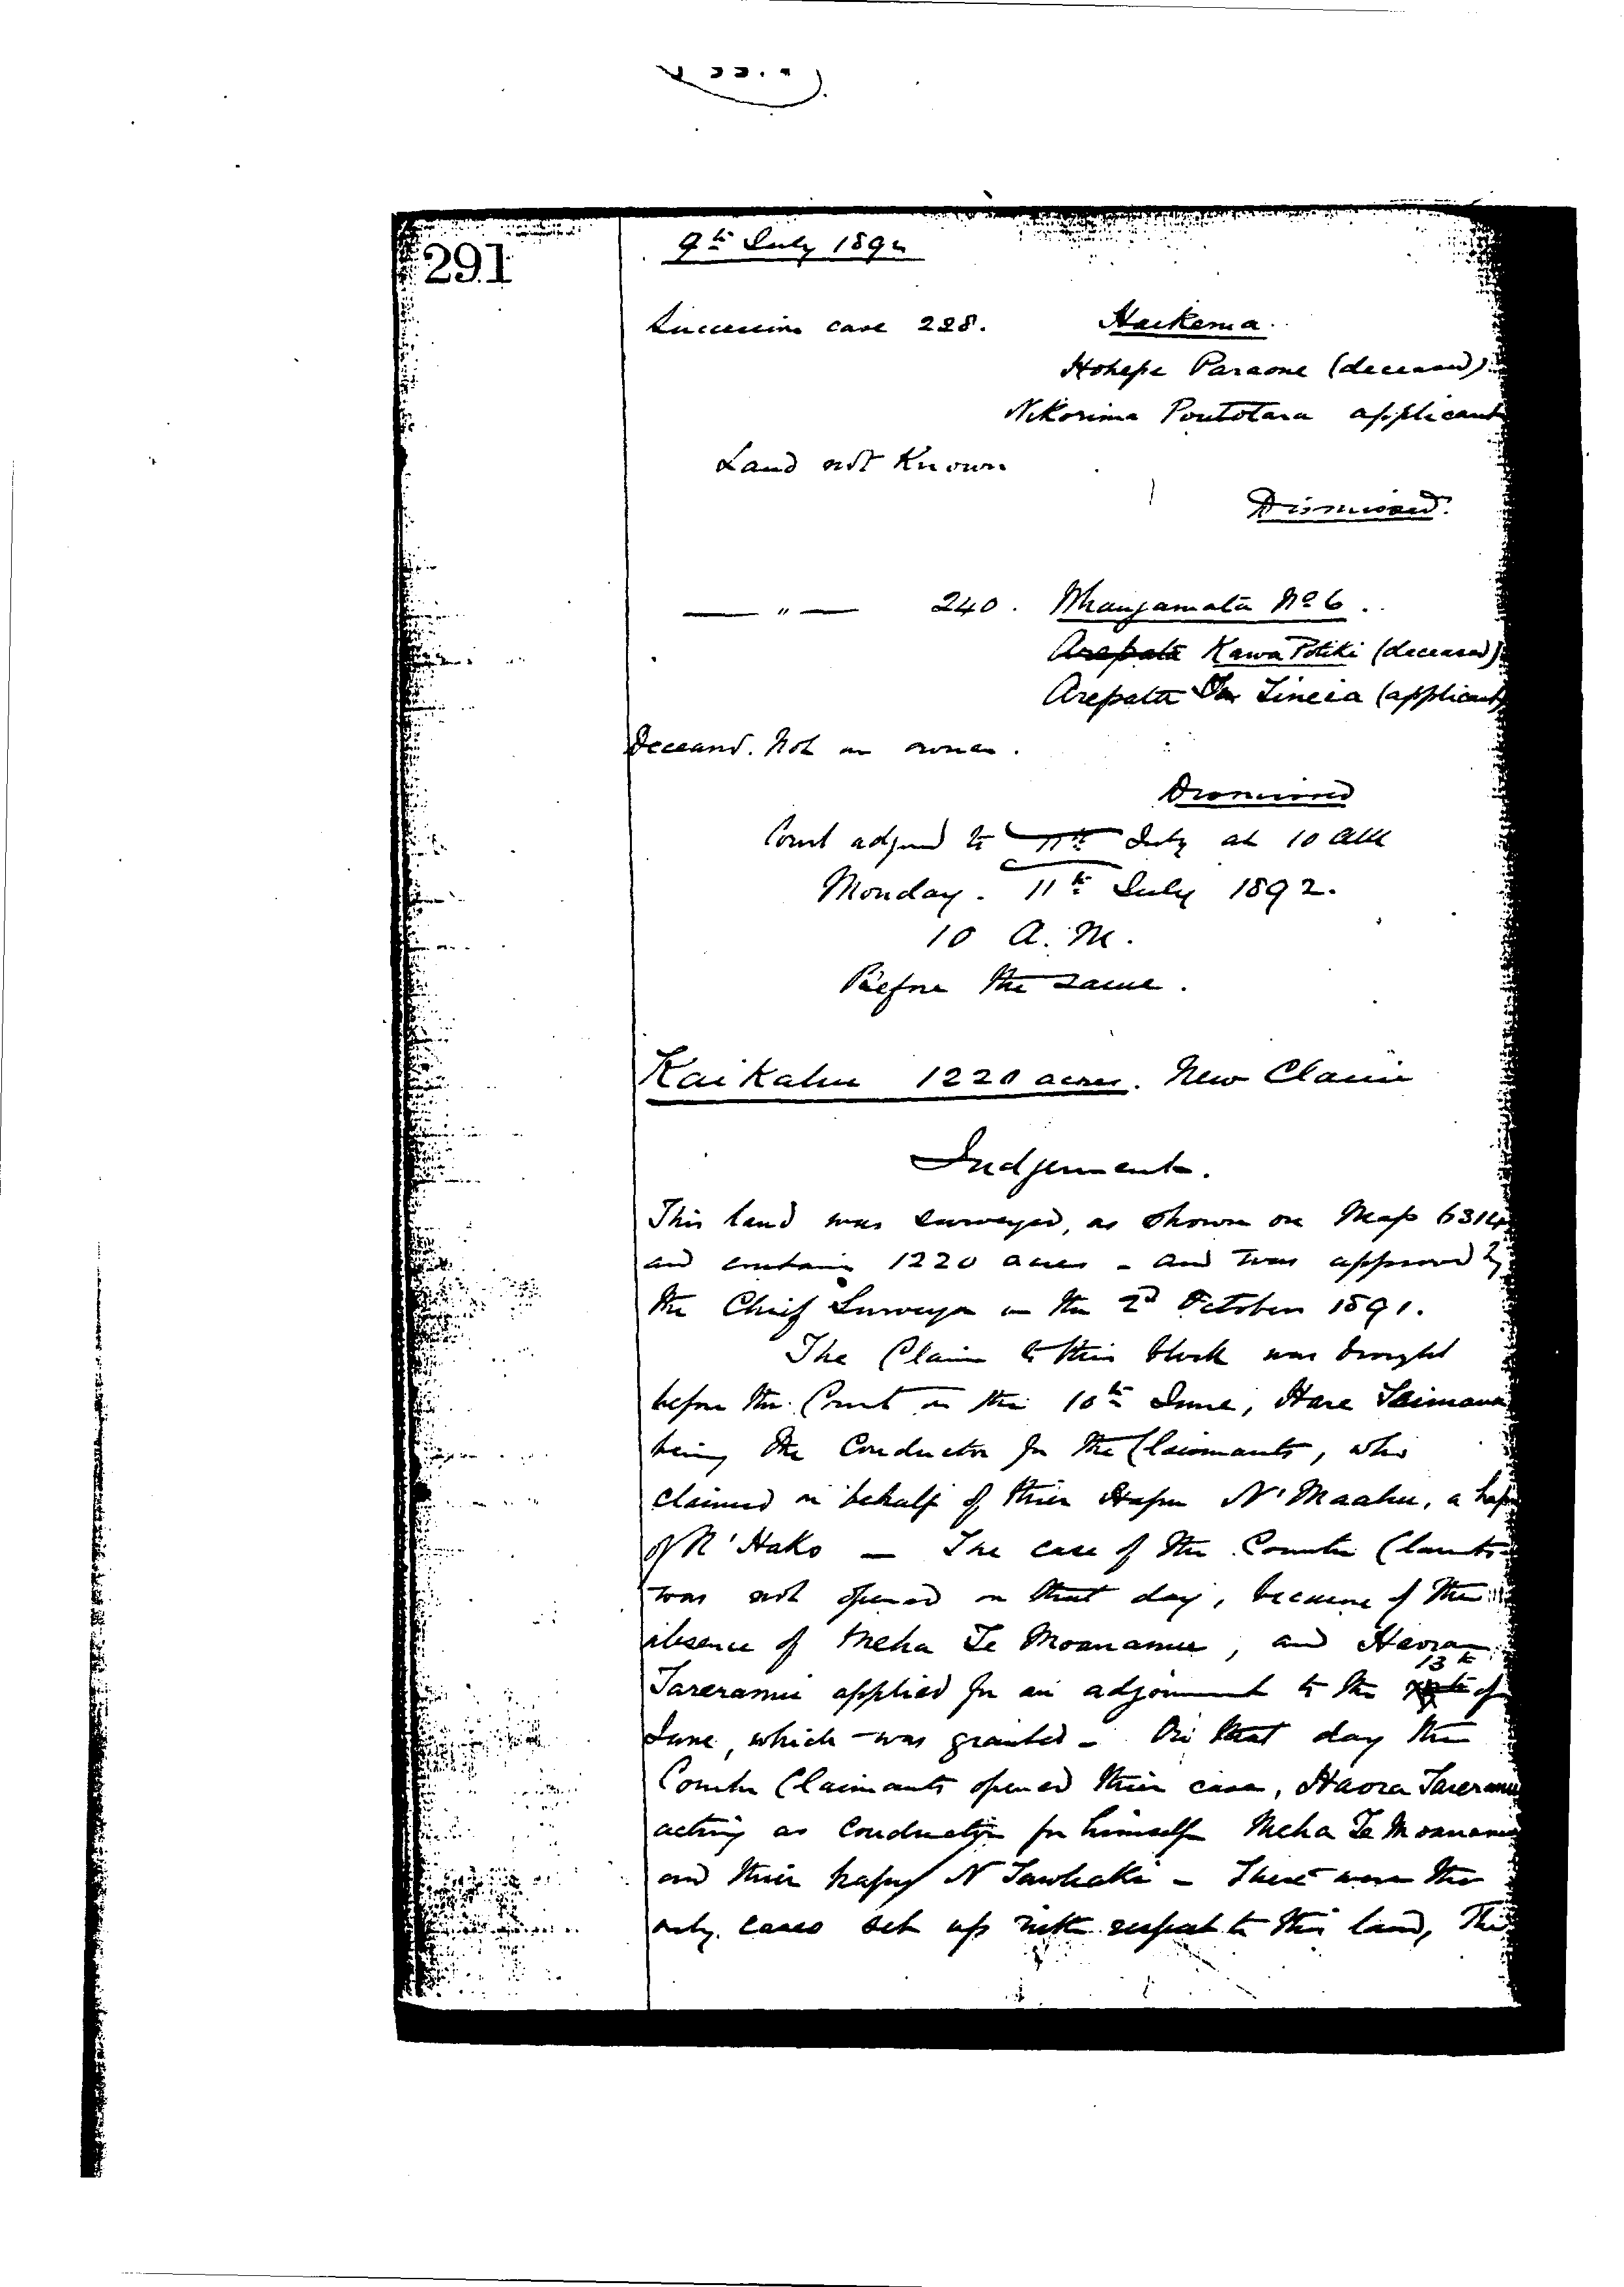 291
9th July 1892
Succession case 228. Haikema
Hohepa Paraone (deceased)
Nikorima Poutotara applicant
Land not Known
Dismissed.
— " — 240. Whangamata No 6.
Arepata Kawa Potiki (deceased)
Arepata Te Tineia (applicant)
Deceased. Not an owner.
Dismissed
Court adjourned to 11th July at 10 AM
Monday. 11th July 1892.
10 A.M.
Before the same.
Kaikahu 1220 acres. New Claim
Judgement.
This land was surveyed, as shown on Map 6314
and contains 1220 acres - and was approved by
the Chief Surveyor on the 2d October 1891.
The Claim to this block was brought
before the Court on the 10th June, Hare Teimana
being the Conductor for the Claimants, who
claimed on behalf of their Hapu N' Maahu, a hapu
of N' Hako — The case of the Counter Claimts
was not opened on that day, because of the
absence of Meha Te Moananui, and Haora
Tareranui applied for an adjournment to the 13th of
June, which was granted - On that day the
Counter Claimants opened their case, Haora Tareranui
acting as Conductor for himself Meha Te Moananui
and their hapu N Tawhaki - These were the
only cases set up with respect to this land, The